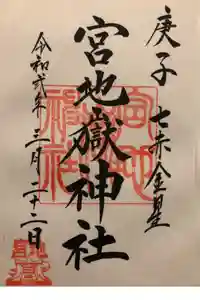 庚子 七赤金星
宮地嶽神社
令和弐年三月二十二日